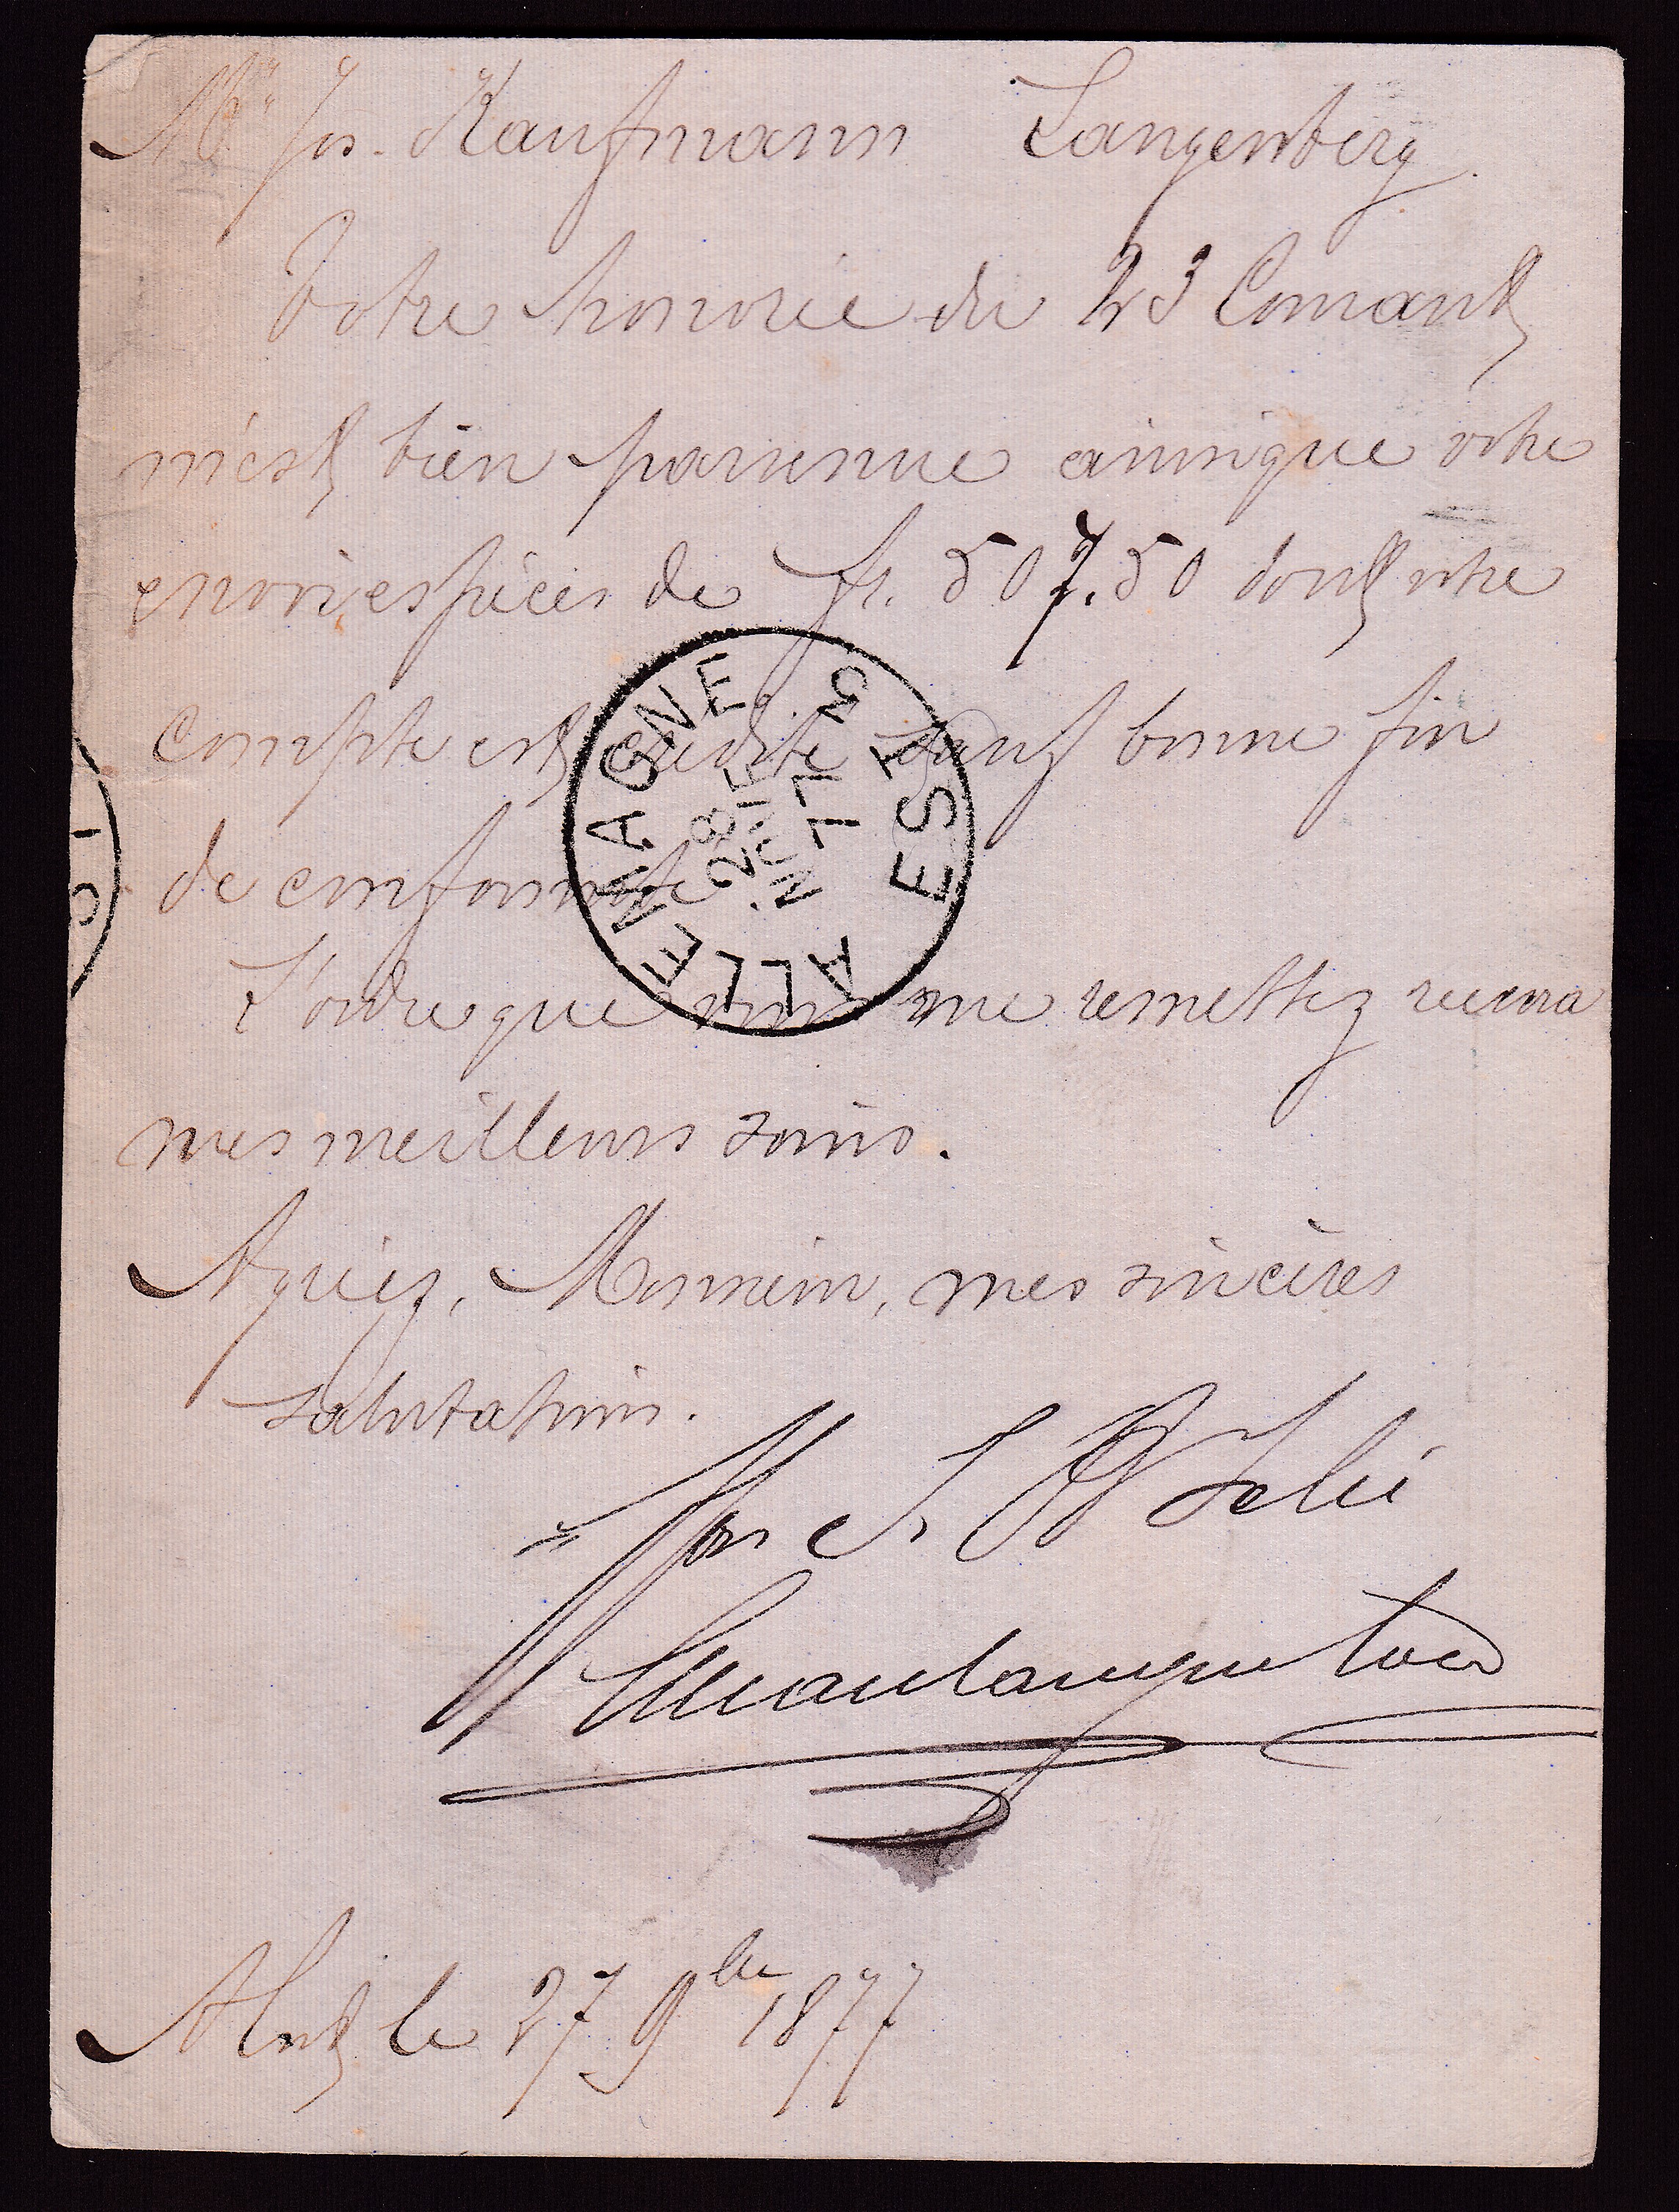 Mr Jos. Kaufmann Langenberg.
Votre honorée du 23 Courant
m'est bien parvenue ainsique votre
envoi, espèces de fr. 507.50 dont votre
compte est crédité sauf bonne fin
de conformité
L'ordre que vous me remettez recevra
mes meilleurs soins.
Agréez, Monsieur, mes sincères
salutations.
Alost le 27 9bre 1877
ALLEMAGNE EST 3
28 NOV 77